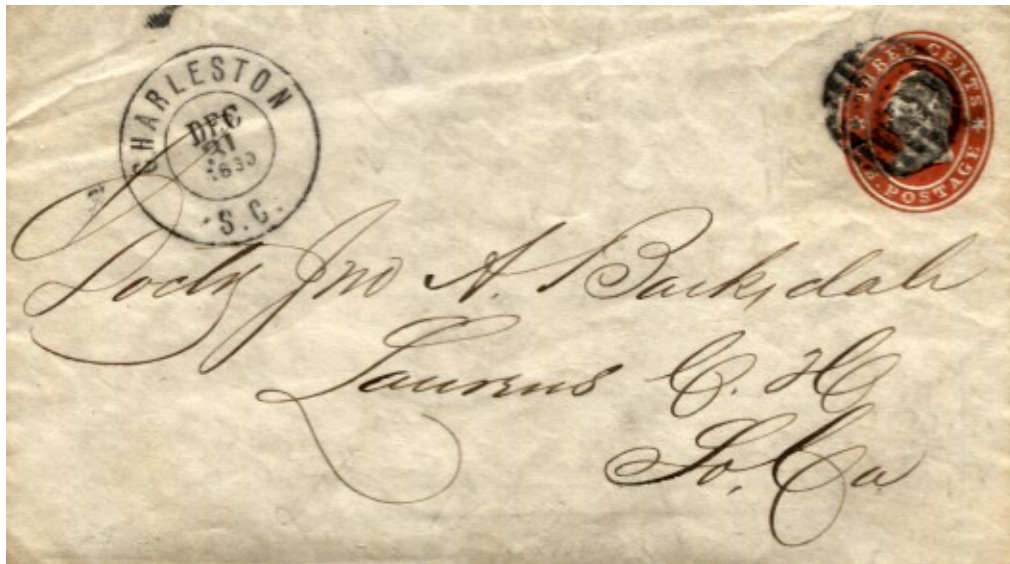 CHARLESTON
DEC
31
S.C.
THREE CENTS
U.S. POSTAGE
Jno A. Barksdale
Laurens C. H.
So. Ca